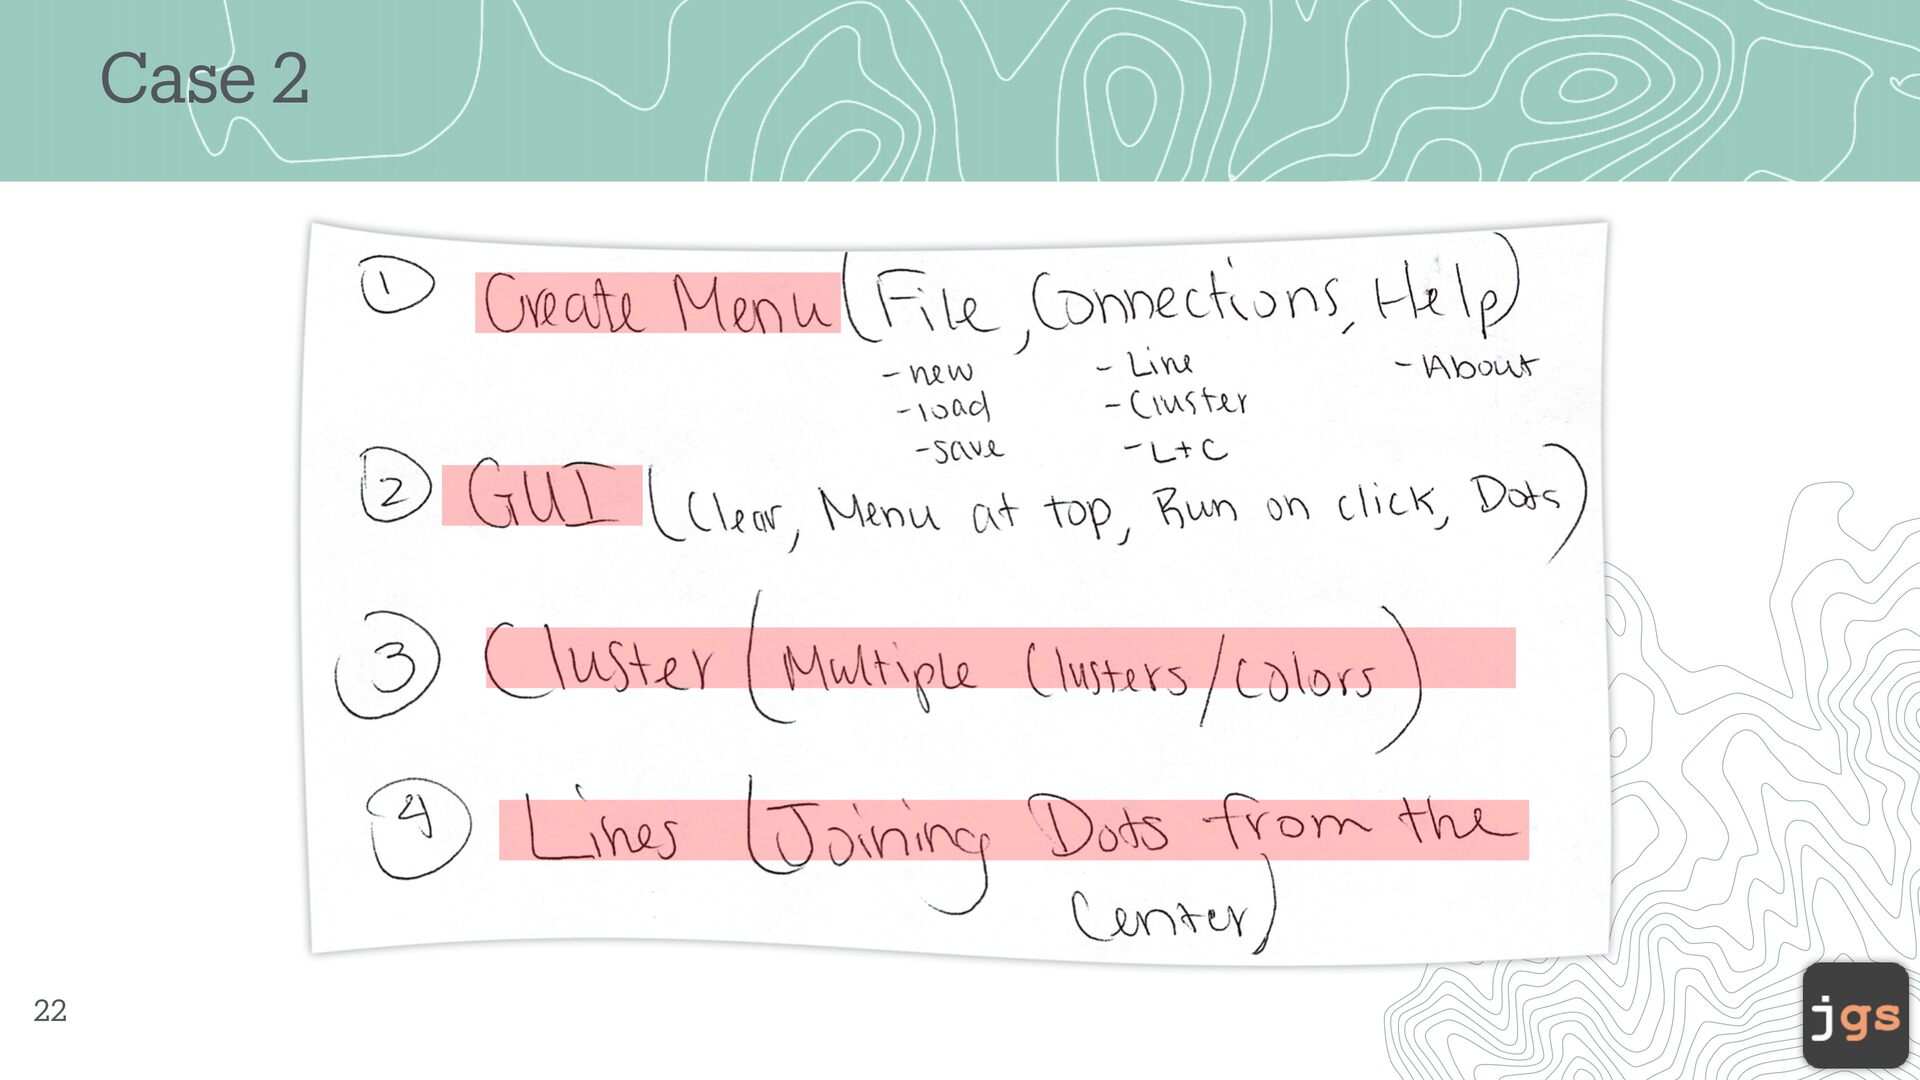 Case 2
① Create Menu (File, Connections, Help)
- new - Line - About
- load - Cluster
- save - L+C
② GUI (Clear, Menu at top, Run on click, Dots)
③ Cluster (Multiple Clusters/colors)
④ Lines (Joining Dots from the
Center)
22
jgs